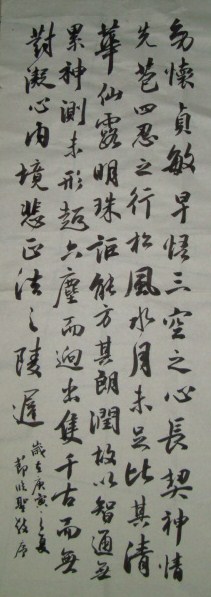 幼懷貞敏早悟三空之心長契神情
先苞四忍之行松風水月未足比其清
華仙露明珠詎能方其朗潤故以智通無
累神測未形超六塵而迥出隻千古而無
對凝心內境悲正法之陵遲
歲在庚寅之夏
節臨聖教序